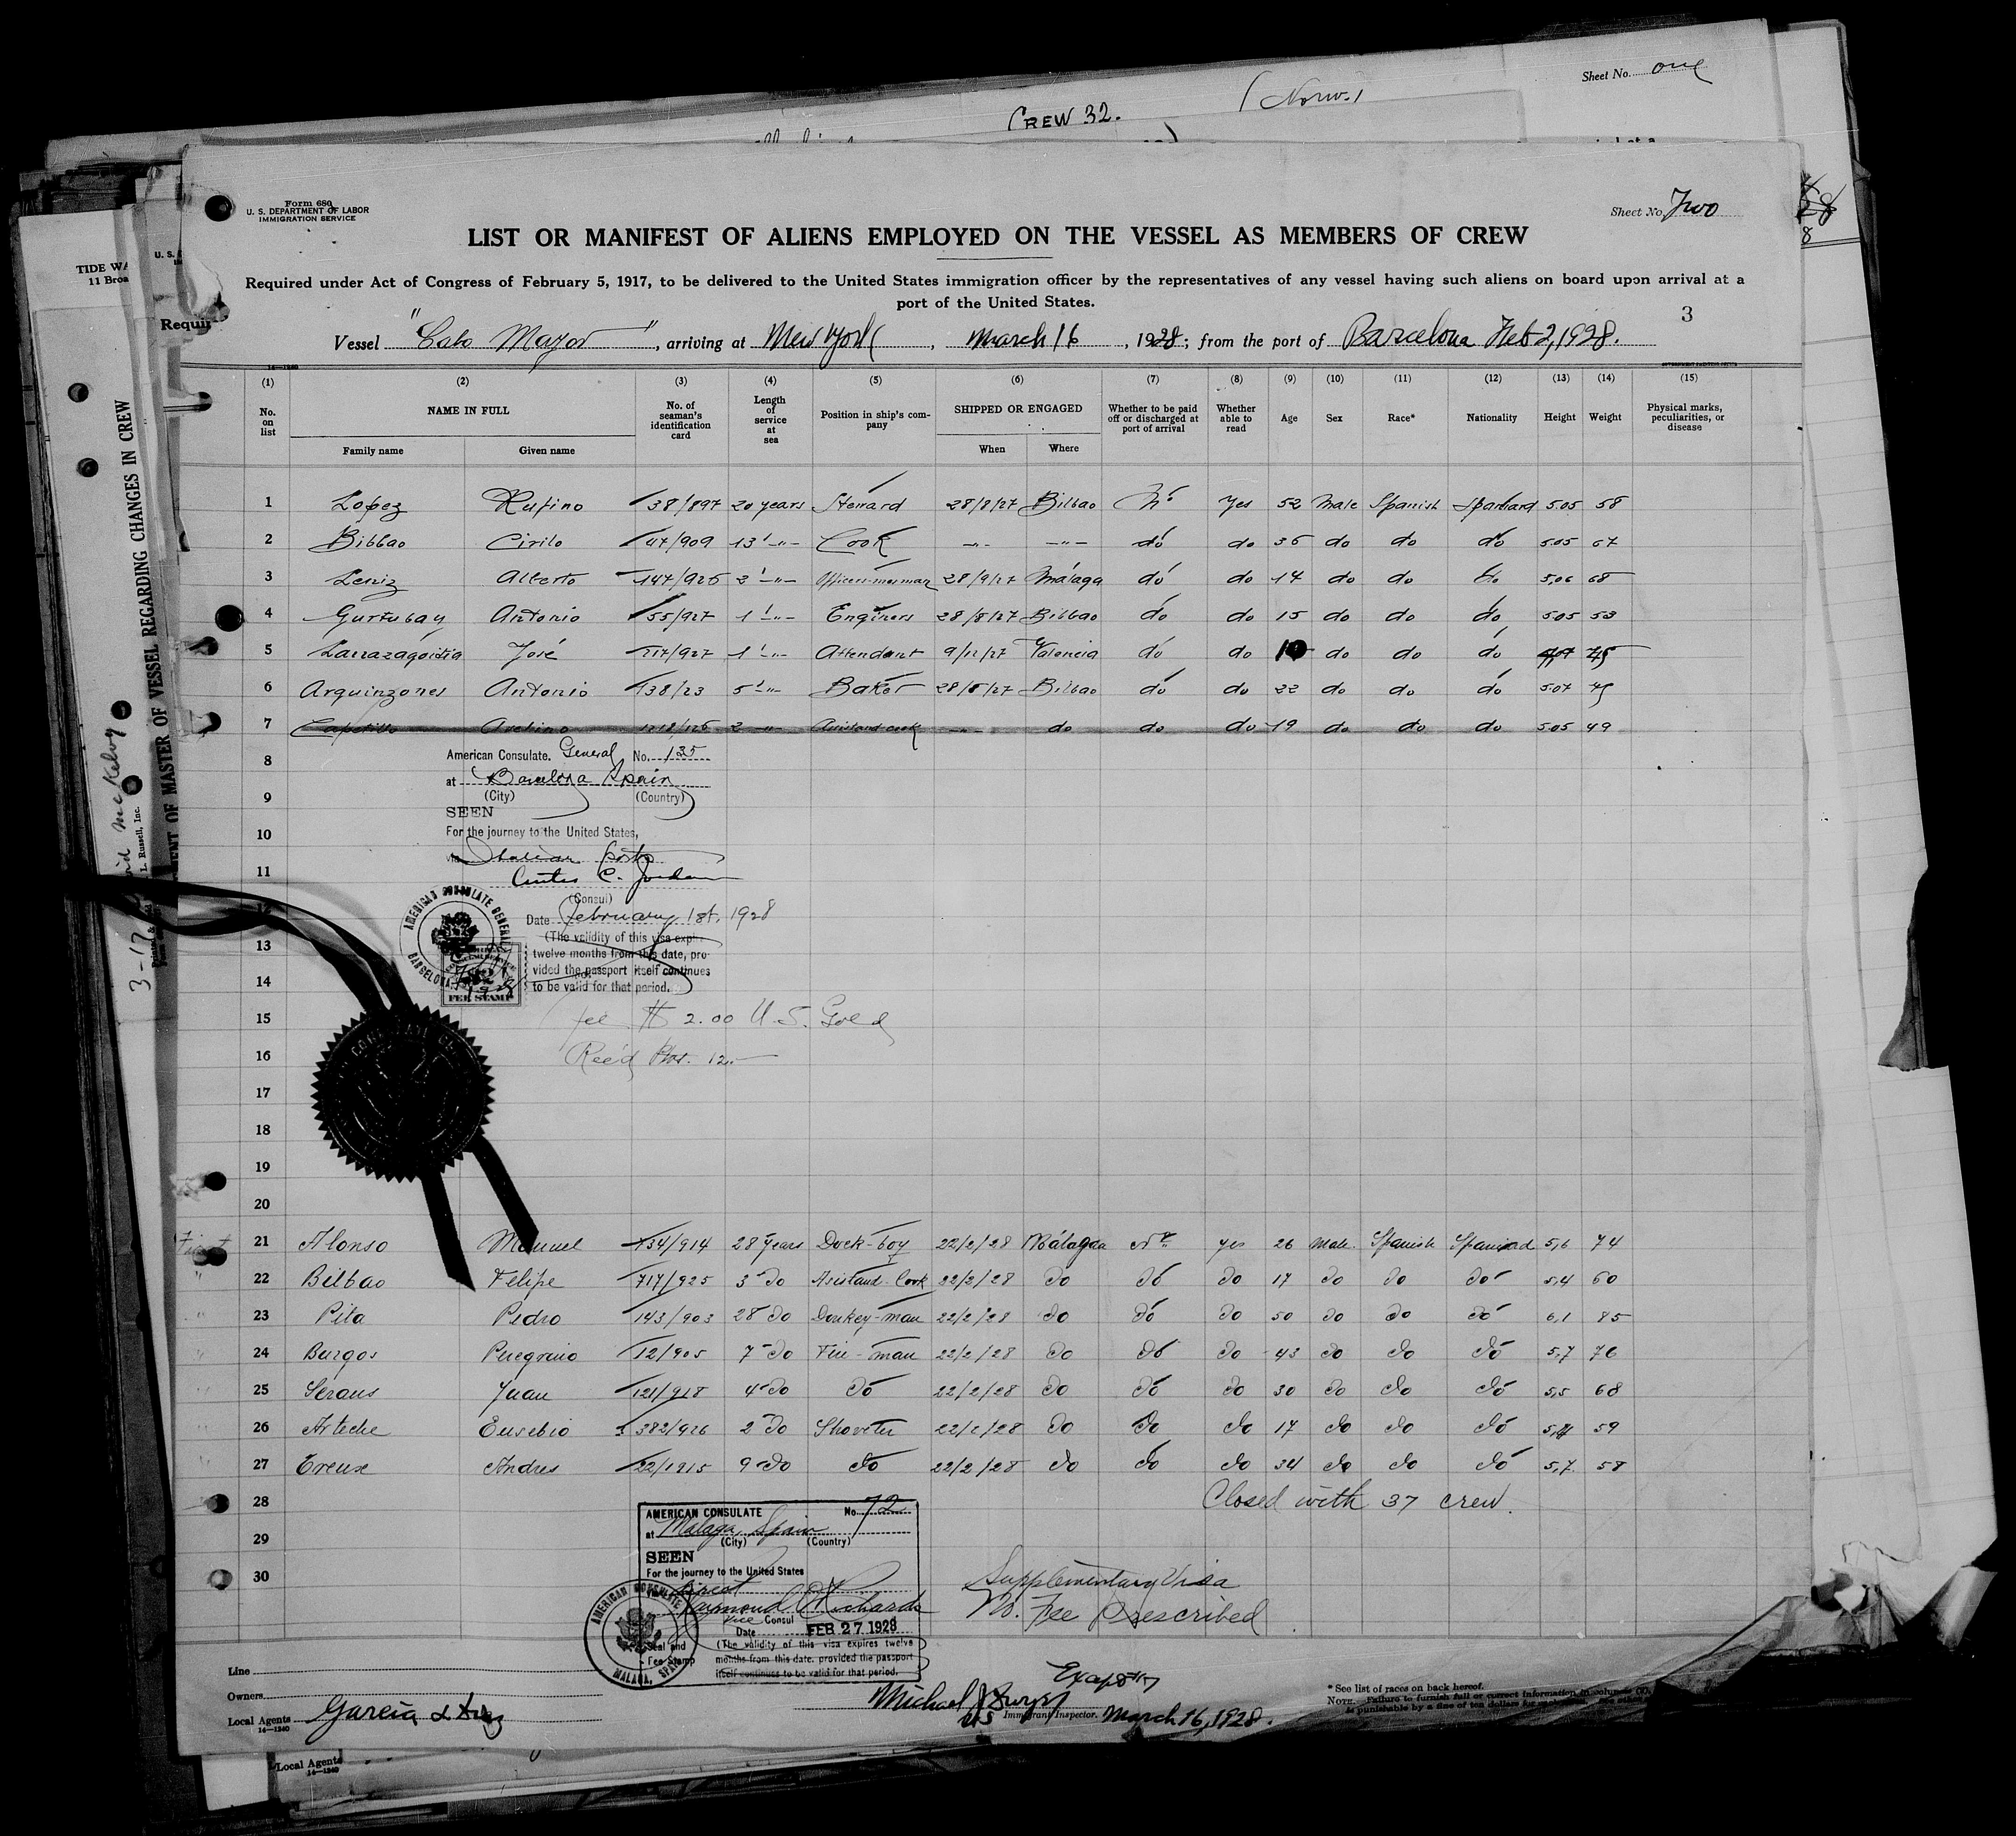 Sheet No. one
CREW 32.
(Norw.)
TIDE WA
11 Broa
Form 680
U. S. DEPARTMENT OF LABOR
IMMIGRATION SERVICE
Sheet No. Two
LIST OR MANIFEST OF ALIENS EMPLOYED ON THE VESSEL AS MEMBERS OF CREW
Required under Act of Congress of February 5, 1917, to be delivered to the United States immigration officer by the representatives of any vessel having such aliens on board upon arrival at a
port of the United States.
3
Vessel "Cabo Mayor", arriving at New York, March 16, 1928; from the port of Barcelona Feb 2, 1928.
(1) (2) (3) (4) (5) (6) (7) (8) (9) (10) (11) (12) (13) (14) (15)
No. on list NAME IN FULL No. of seaman's identification card Length of service at sea Position in ship's company SHIPPED OR ENGAGED Whether to be paid off or discharged at port of arrival Whether able to read Age Sex Race* Nationality Height Weight Physical marks, peculiarities, or disease
Family name Given name When Where
1 Lopez Rufino 38/897 20 years Steward 28/8/27 Bilbao No Yes 52 Male Spanish Spaniard 5.05 58
2 Bilbao Cirilo 47/909 13 -"- Cook -"- -"- do do 36 do do do 5.05 67
3 Leniz Alberto 147/926 2 -"- 28/9/27 Málaga do do 14 do do do 5.06 68
4 Gurtubay Antonio 55/927 1 -"- Engineers 28/8/27 Bilbao do do 15 do do do 5.05 53
5 Larrazagoitia José 217/927 1 -"- Attendant 9/12/27 Valencia do do do do do
6 Arquinzones Antonio 138/23 5 -"- Baker 28/8/27 Bilbao do do 22 do do do 5.07
7 Capetillo Avelino 2 -"- Assistand cook -"- do do do 19 do do do 5.05 49
8
American Consulate. General No. 135
at Barcelona Spain
(City) (Country)
9
SEEN
10
For the journey to the United States,
via Italian ports
11
Curtis C. Jordan
(Consul)
12
Date February 1st, 1928
13
(The validity of this visa expires
twelve months from this date, pro-
vided the passport itself continues
to be valid for that period.
AMERICAN CONSULATE GENERAL
BARCELONA
FEE STAMP
14
15 fee $ 2.00 U. S. Gold
16 Rec'd Ptas. 12.-
17
18
19
20
21 Alonso Manuel 134/914 28 years Deck-boy 22/2/28 Málaga No yes 26 Male Spanish Spaniard 5,6 74
22 Bilbao Felipe 717/925 3 do Asistand-Cook 22/2/28 do do do 17 do do do 5,4 60
23 Pita Pedro 143/903 28 do Donkey-man 22/2/28 do do do 50 do do do 6,1 85
24 Burgos Peregrino 12/905 7 do Fire-man 22/2/28 do do do 43 do do do 5,7 76
25 Serans Juan 121/918 4 do do 22/2/28 do do do 30 do do do 5,5 68
26 Arteche Eusebio 382/926 2 do Shoveler 22/2/28 do do do 17 do do do 59
27 Ereuse Andres 22/1915 9 do do 22/2/28 do do do 34 do do do 5,7 58
28 Closed with 37 crew.
29
30
AMERICAN CONSULATE No. 72
at Malaga, Spain
(City) (Country)
SEEN
For the journey to the United States
direct
Raymond O Richards
Vice Consul
Date FEB 27 1928
Seal and
Fee Stamp
(The validity of this visa expires twelve
months from this date, provided the passport
itself continues to be valid for that period.
AMERICAN CONSULATE
MALAGA, SPAIN
Supplementary Visa
No. Fee prescribed
Line
Owners
Local Agents Garcia & Diaz
14—1240
Michael J
Immigrant Inspector. March 16, 1928.
* See list of races on back hereof.
NOTE. Failure to furnish full or correct information in columns
is punishable by a fine of ten dollars for
Local Agents
14—1240
ENT OF MASTER OF VESSEL REGARDING CHANGES IN CREW
L. Russell, Inc.